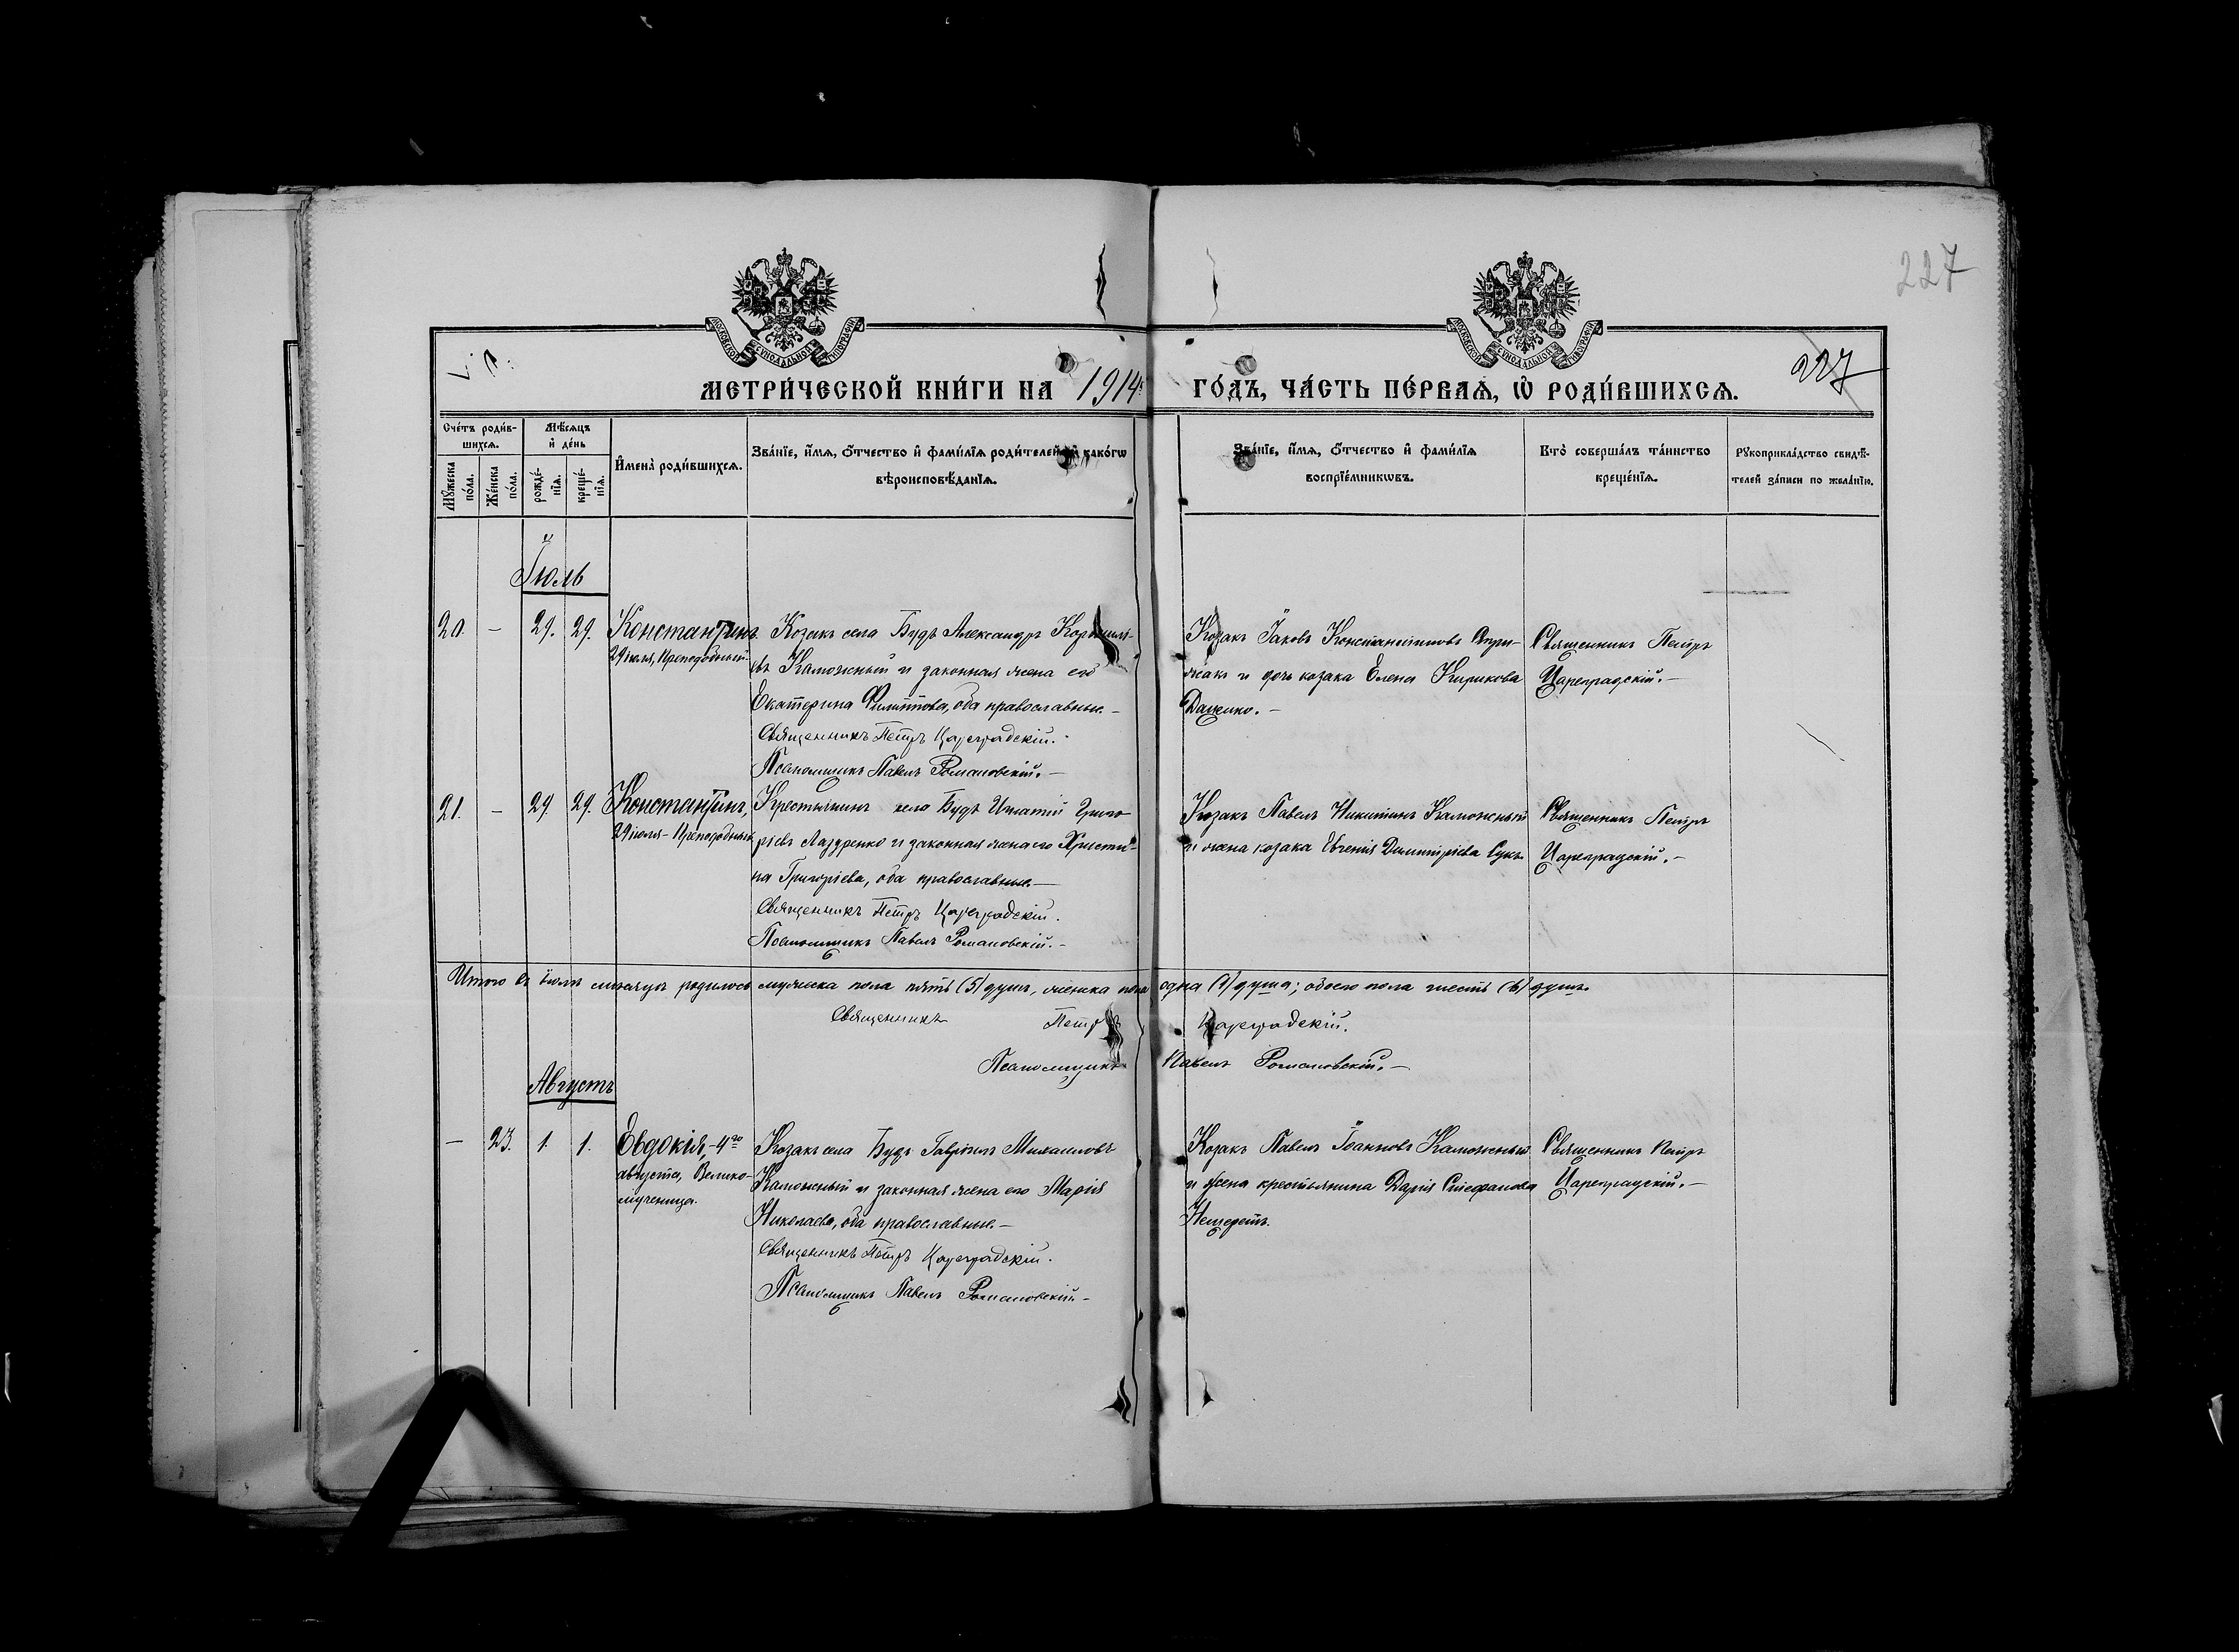 227
МОСКОВСКОЙ СѴНОДАЛЬНОЙ ТИПОГРАФІИ
МОСКОВСКОЙ СѴНОДАЛЬНОЙ ТИПОГРАФІИ
227
МЕТРИ́ЧЕСКОЙ КНИ́ГИ НА 1914 ГО́ДЪ, ЧА́СТЬ ПЕ́РВАѦ, Ѡ РОДИ́ВШИХСѦ.
Сче́тъ роди́в-
шихсѧ.
Мѣ́сѧцъ
и҆ де́нь
Мꙋ́жеска
по́ла.
Же́нска
по́ла.
рожде́-
нїѧ.
креще́-
нїѧ.
И҆мена̀ роди́вшихсѧ.
Зва́нїе, и҆́мѧ, ѻ҆́тчество и҆ фами́лїѧ роди́телей и҆ како́гѡ
вѣроисповѣ́данїѧ.
Зва́нїе, и҆́мѧ, ѻ҆́тчество и҆ фами́лїѧ
воспрїе́мникѡвъ.
Кто̀ соверша́лъ та́инство
креще́нїѧ.
Рꙋкоприкла́дство свидѣ́-
телей за́писи по жела́нїю.
Іюль
20. — 29. 29. Константинъ.
29 іюля, Преподобный.
Козакъ села Будъ Александръ Корнилі-
евъ Каможный и законная жена его
Екатерина Филиппова, оба православные. —
Священникъ Петръ Цареградскій.
Псаломщикъ Павелъ Романовскій. —
Козакъ Іаковъ Константиновъ
и дочь козака Елена Кирикова
Священникъ Петръ
Цареградскій. —
21. — 29. 29. Константинъ,
29 іюля - Преподобный
Крестьянинъ села Будъ Игнатій Григо-
ріевъ Лазуренко и законная жена его Христи-
на Григоріева, оба православные. —
Священникъ Петръ Цареградскій.
Псаломщикъ Павелъ Романовскій. —
Козакъ Павелъ Никитинъ Каможный
и жена козака Евгенія Димитріева
Священникъ Петръ
Цареградскій. —
Итого въ іюлѣ мѣсяцѣ родилось мужеска пола пять (5) душъ, женска пола одна (1) душа; обоего пола шесть (6) душъ.
Священникъ Петръ Цареградскій.
Псаломщикъ Павелъ Романовскій. —
Августъ
— 23. 1. 1. Евдокія, - 4го
августа, Велико-
мученица.
Козакъ села Будъ Гавріилъ Михаиловъ
Каможный и законная жена его Марія
Николаева, оба православные. —
Священникъ Петръ Цареградскій.
Псаломщикъ Павелъ Романовскій. —
Козакъ Павелъ Іоанновъ Каможный
и жена крестьянина Дарія Стефанова
Нещеретъ.
Священникъ Петръ
Цареградскій. —